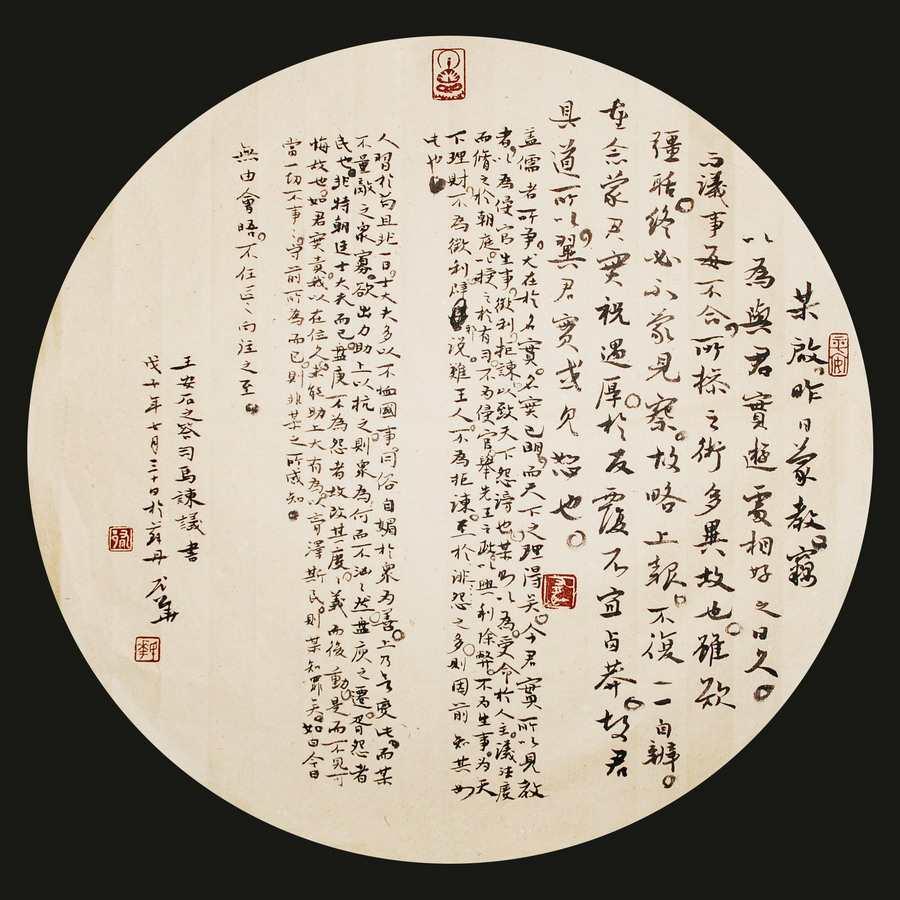 某啟昨日蒙教。竊
以為與君實遊處相好之日久。
而議事每不合，所操之術多異故也。雖欲
彊聒。終必不蒙見察。故略上報。不復一一自辨。
重念蒙君實視遇厚。於反覆不宜鹵莽。故君
具道所以，翼君實或見恕也。
蓋儒者所爭。尤在於名實。名實已明，而天下之理得矣。今君實所以見教
者，以為侵官生事，徵利，拒諫，以致天下怨謗也。某則以為受命於人主。議法度
而脩之於朝庭。以授之於有司。不為侵官。舉先王之政，以興利除弊。不為生事。為天
下理財。不為徵利。闢邪說難壬人。不為拒諫。至於誹怨之多。則固前知其如
此也。
人習於苟且非一日。士大夫多以不恤國事。同俗自媚於衆為善。上乃欲變此。而某
不量敵之衆寡。欲出力助上以抗之則衆為何而不洶洶然盤庚之遷。胥怨者
民也。非特朝廷士大夫而已。盤庚不為怨者故改其度。度義而後動。是而不見可
悔故也。如君實責我以在位久。未能助上大有為。以膏澤斯民。則某知罪矣。如曰今日
當一切不事事。守前所為而已。則非某之所感知。
無由會晤。不任區區向往之至。
王安石之答司馬諫議書
年七月三十日於